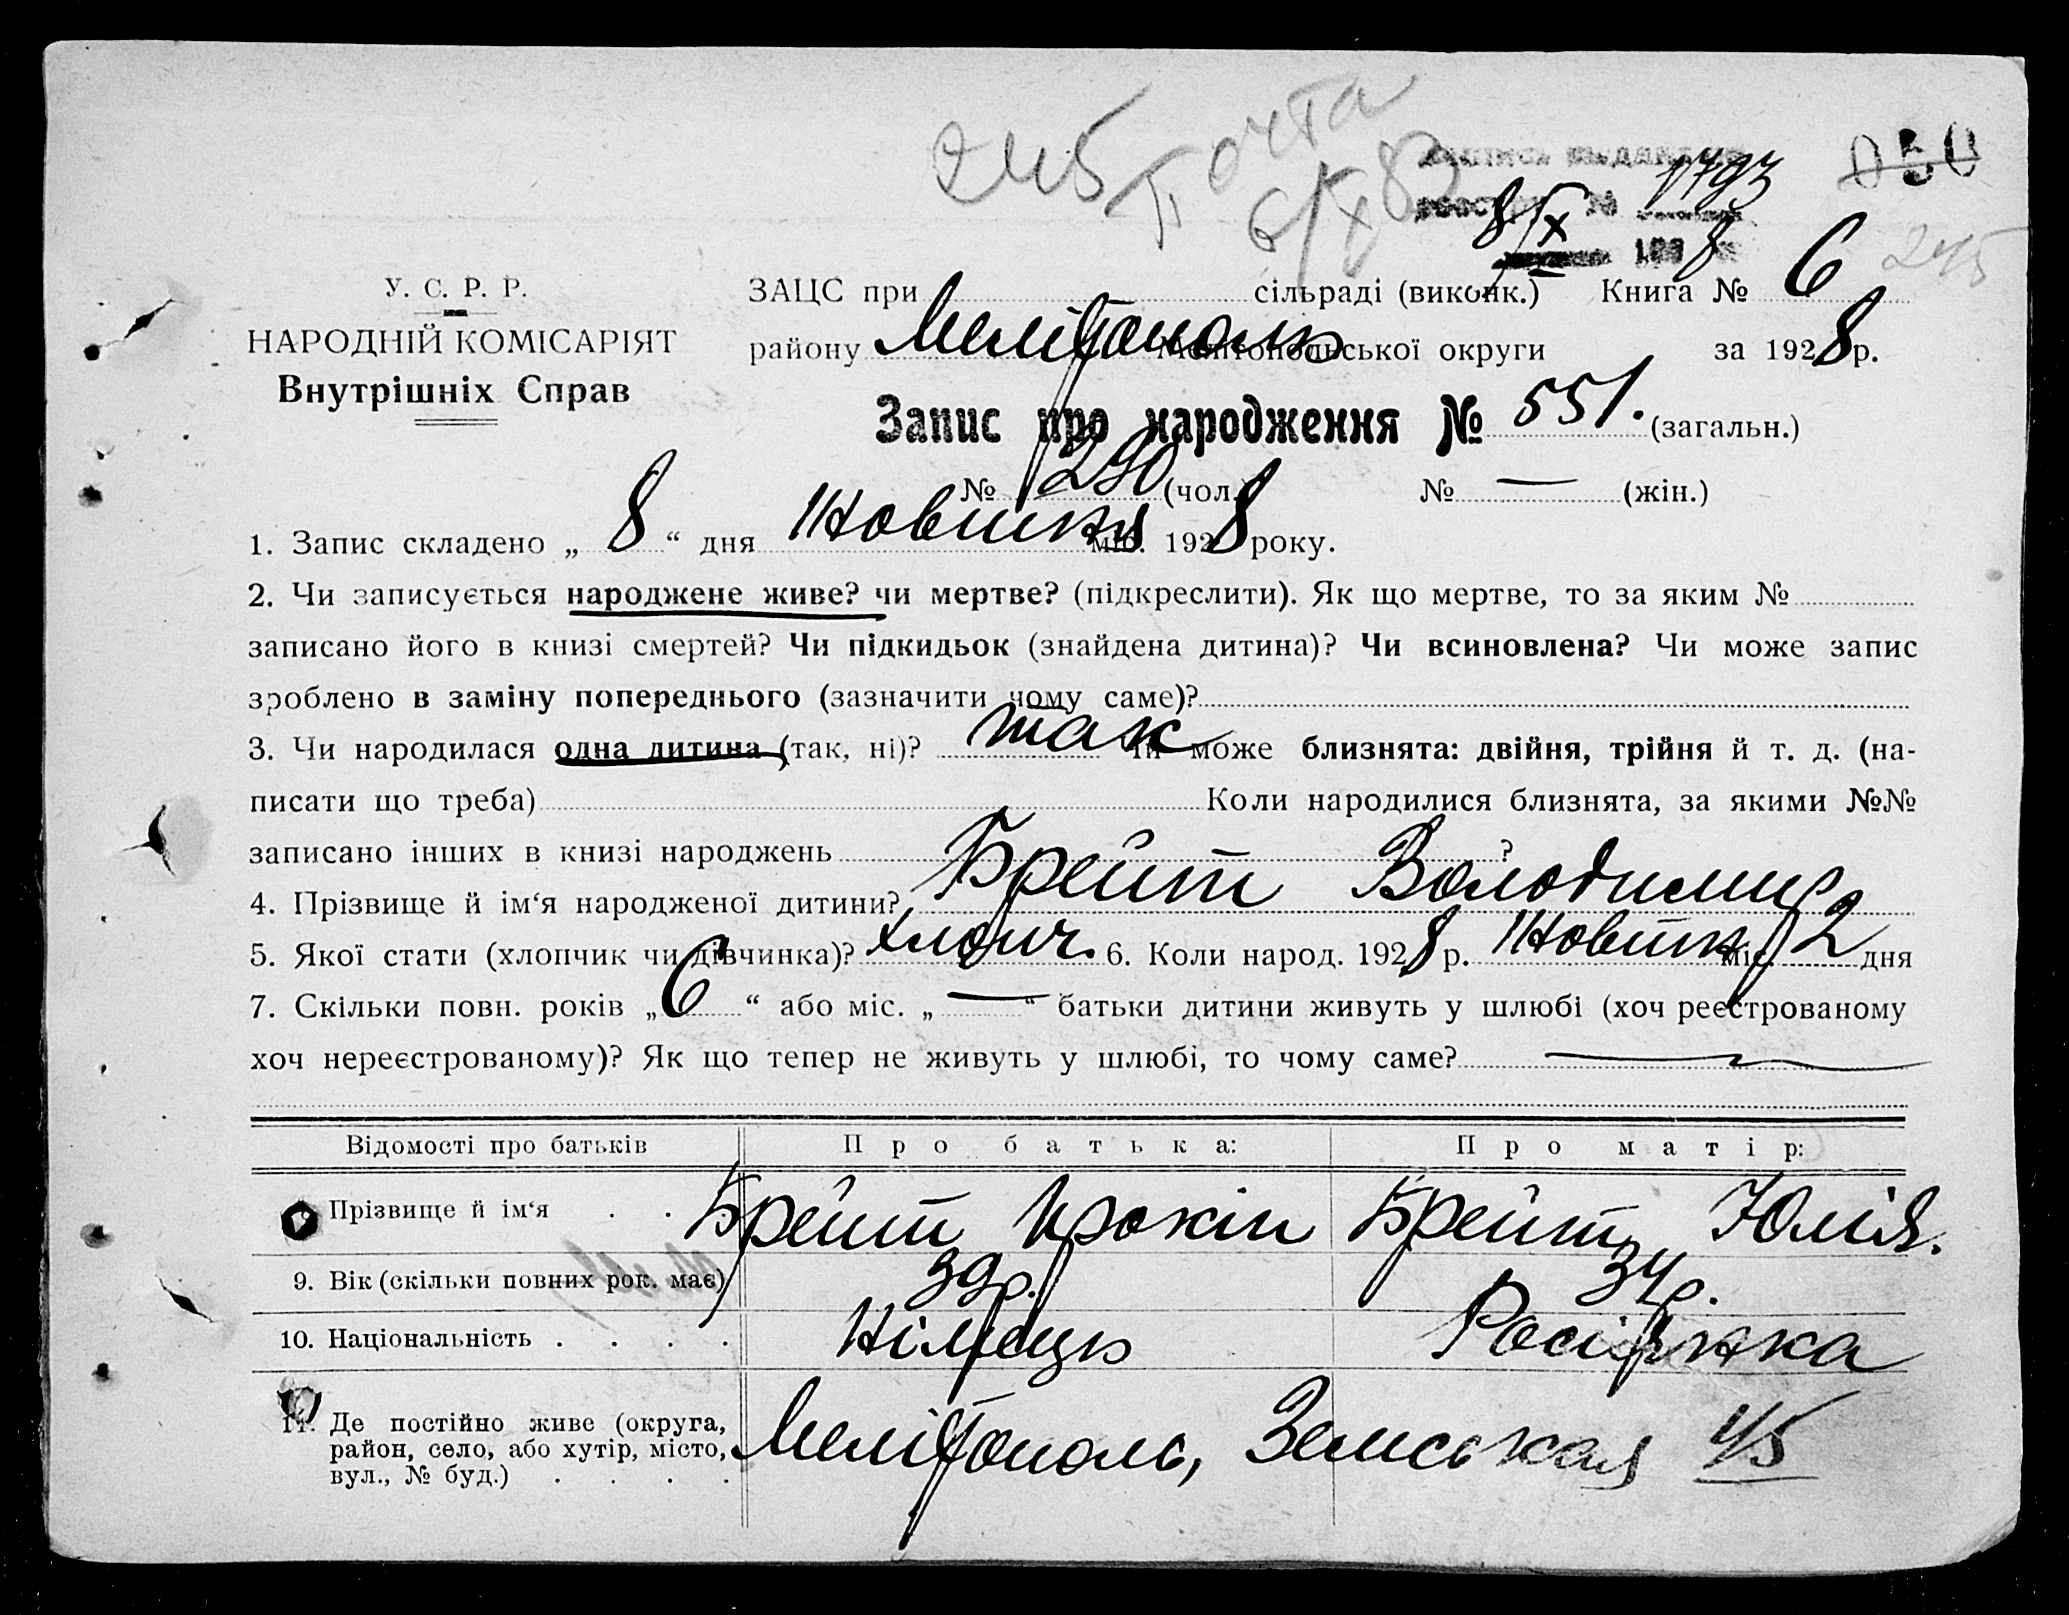 245 Почта
6/X 83
1793
050
8/IX
8
245
У. С. Р. Р.
НАРОДНІЙ КОМІСАРІЯТ
Внутрішніх Справ
ЗАЦС при сільраді (виконк.) Книга № 6
району Мелітополь Мелітопольської округи за 1928 р.
Запис про народження № 551. (загальн.)
№ 290 (чол.) № — (жін.)
1. Запис складено „ 8 “ дня Жовтня міс. 1928 року.
2. Чи записується народжене живе? чи мертве? (підкреслити). Як що мертве, то за яким №
записано його в книзі смертей? Чи підкидьок (знайдена дитина)? Чи всиновлена? Чи може запис
зроблено в заміну попереднього (зазначити чому саме)?
3. Чи народилася одна дитина (так, ні)? так Чи може близнята: двійня, трійня й т. д. (на-
писати що треба) Коли народилися близнята, за якими №№
записано інших в книзі народжень ?
4. Прізвище й ім‘я народженої дитини? Брейт Володимир
5. Якої стати (хлопчик чи дівчинка)? хлопч. 6. Коли народ. 1928 р. Жовтня міс. 2 дня
7. Скільки повн. років „ 6 “ або міс. „ — “ батьки дитини живуть у шлюбі (хоч реєстрованому
хоч нереєстрованому)? Як що тепер не живуть у шлюбі, то чому саме? —
Відомості про батьків Про батька: Про матір:
Прізвище й ім‘я . . . Брейт Брейт Юлія.
9. Вік (скільки повних рок. має) 39р. 34р.
10. Національність . . . . Німець Росіянка
11. Де постійно живе (округа,
район, село, або хутір, місто, Мелітополь, Земськая 45
вул., № буд.) . . . .